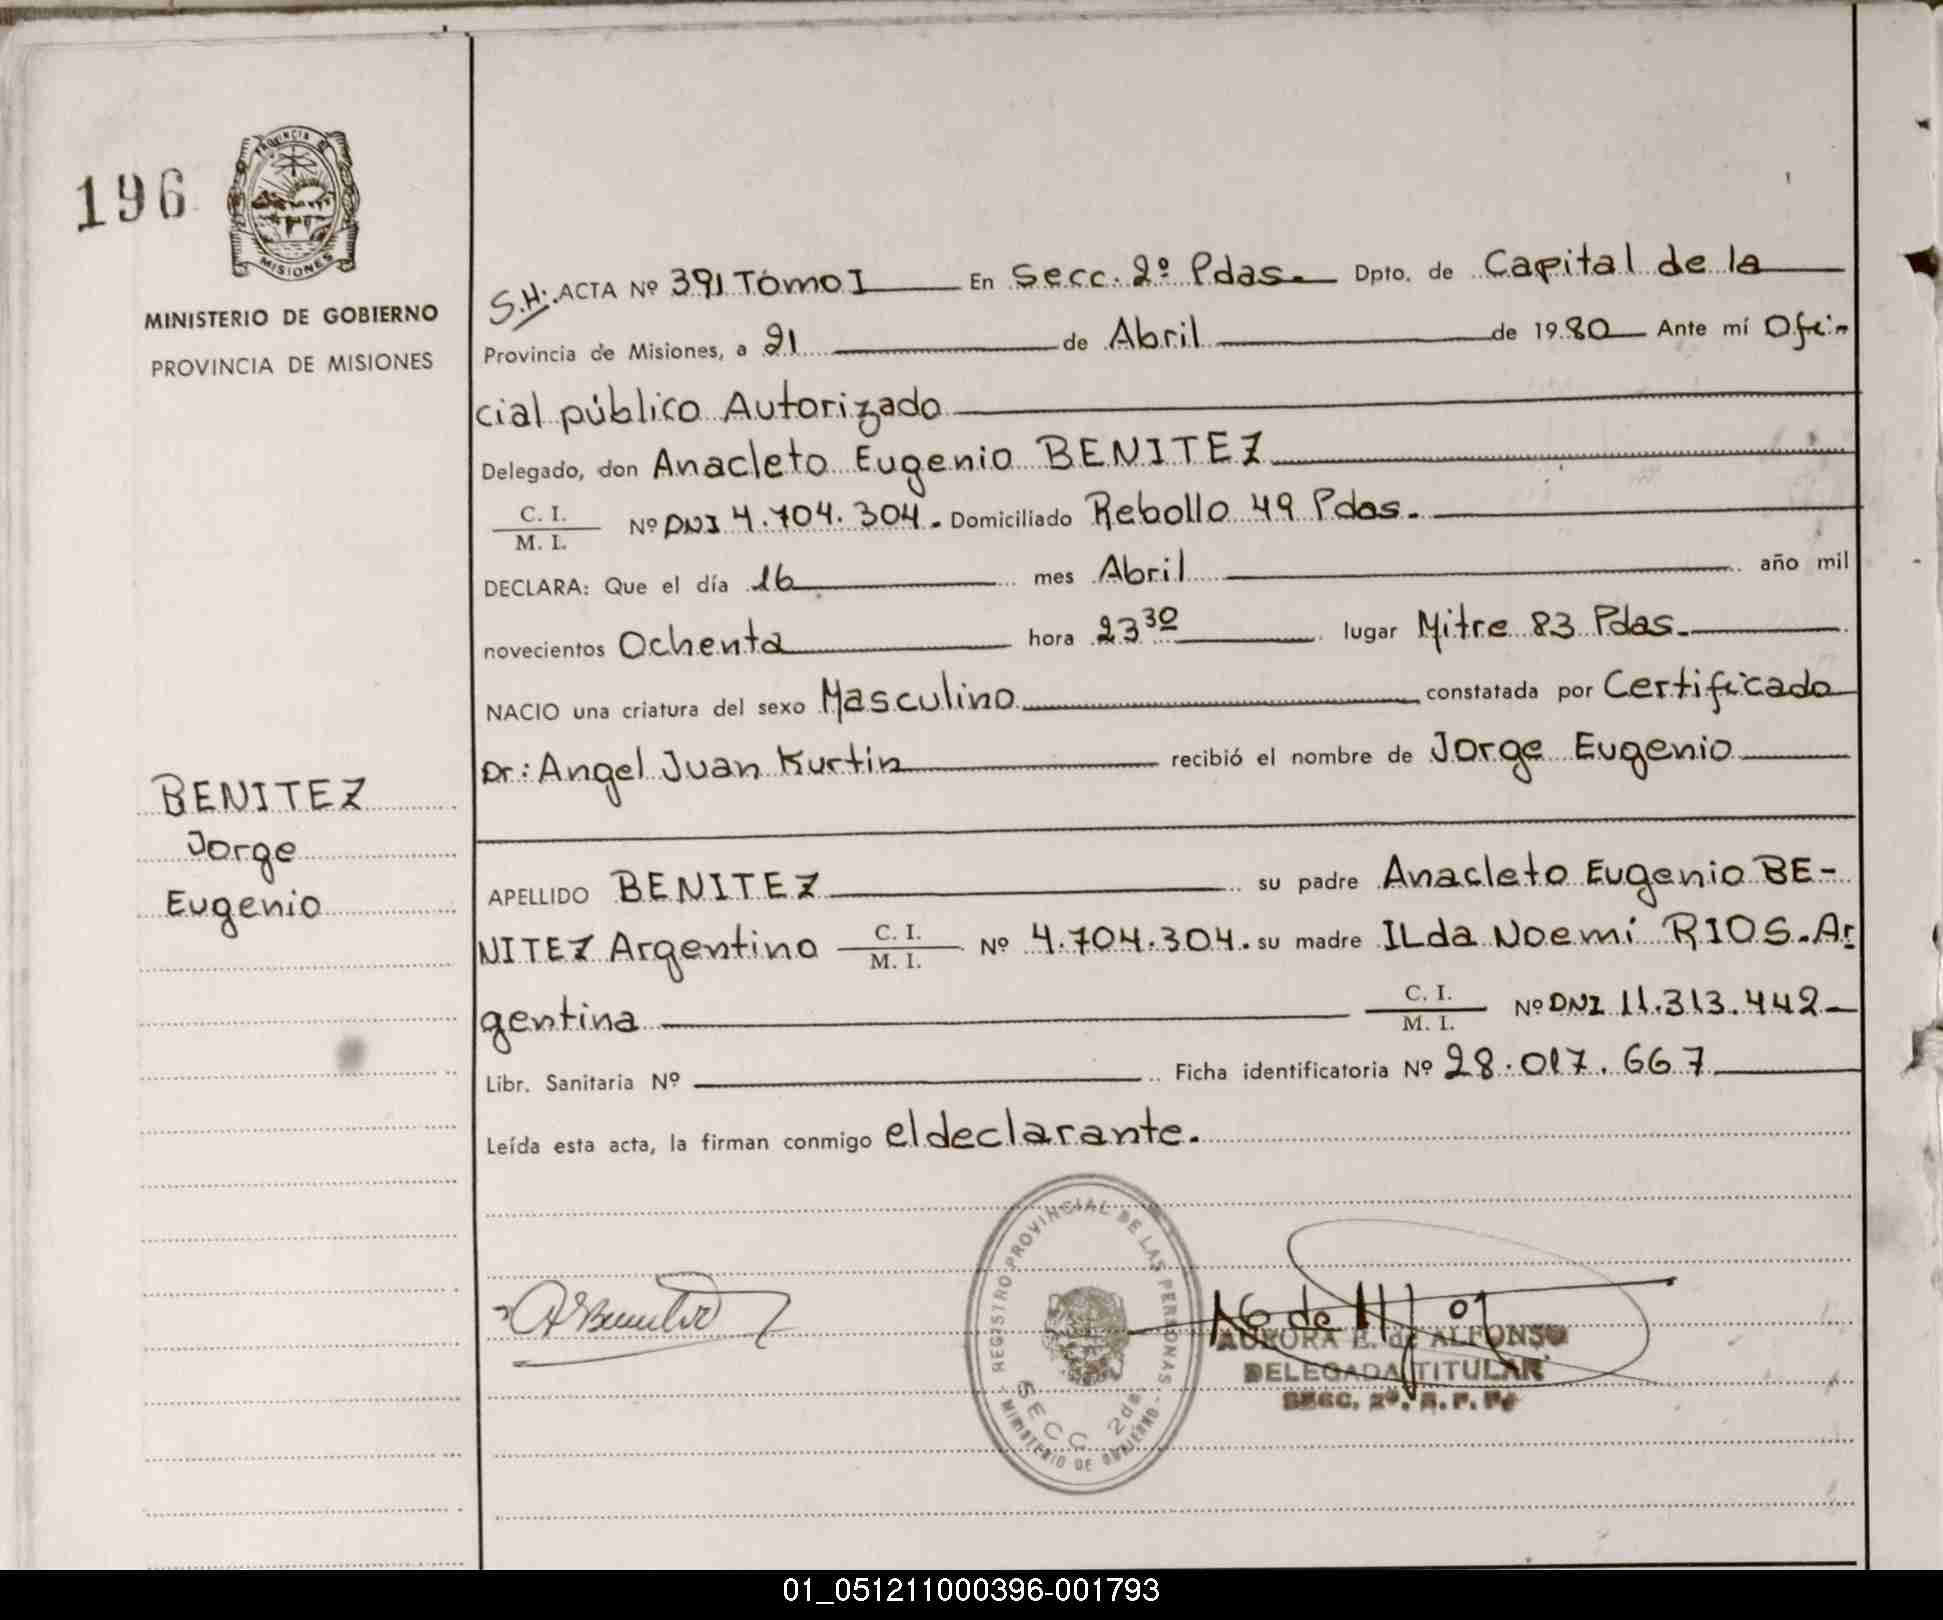 196
PROVINCIA DE
MISIONES
MINISTERIO DE GOBIERNO
PROVINCIA DE MISIONES
BENITEZ
Jorge
Eugenio
S.H: ACTA Nº 391 Tomo I En Secc. 2º Pdas. Dpto. de Capital de la
Provincia de Misiones, a 21 de Abril de 1980 Ante mí Ofi-
cial público Autorizado
Delegado, don Anacleto Eugenio BENITEZ
C. I.
M. I. Nº DNI 4.704.304. Domiciliado Rebollo 49 Pdas.
DECLARA: Que el día 16 mes Abril año mil
novecientos Ochenta hora 23 30 lugar Mitre 83 Pdas.
NACIO una criatura del sexo Masculino constatada por Certificado
Dr: Angel Juan Kurtin recibió el nombre de Jorge Eugenio
APELLIDO BENITEZ su padre Anacleto Eugenio BE-
NITEZ Argentino C. I. M. I. Nº 4.704.304. su madre ILda Noemi RIOS. Ar
gentina C. I. M. I. Nº DNI 11.313.442
Libr. Sanitaria Nº Ficha identificatoria Nº 28.017.667
Leída esta acta, la firman conmigo el declarante.
REGISTRO PROVINCIAL DE LAS PERSONAS
SECC 2da.
MINISTERIO DE GOBIERNO
AURORA E. de ALFONSO
DELEGADA TITULAR
SECC. 2ª.
01_051211000396-001793